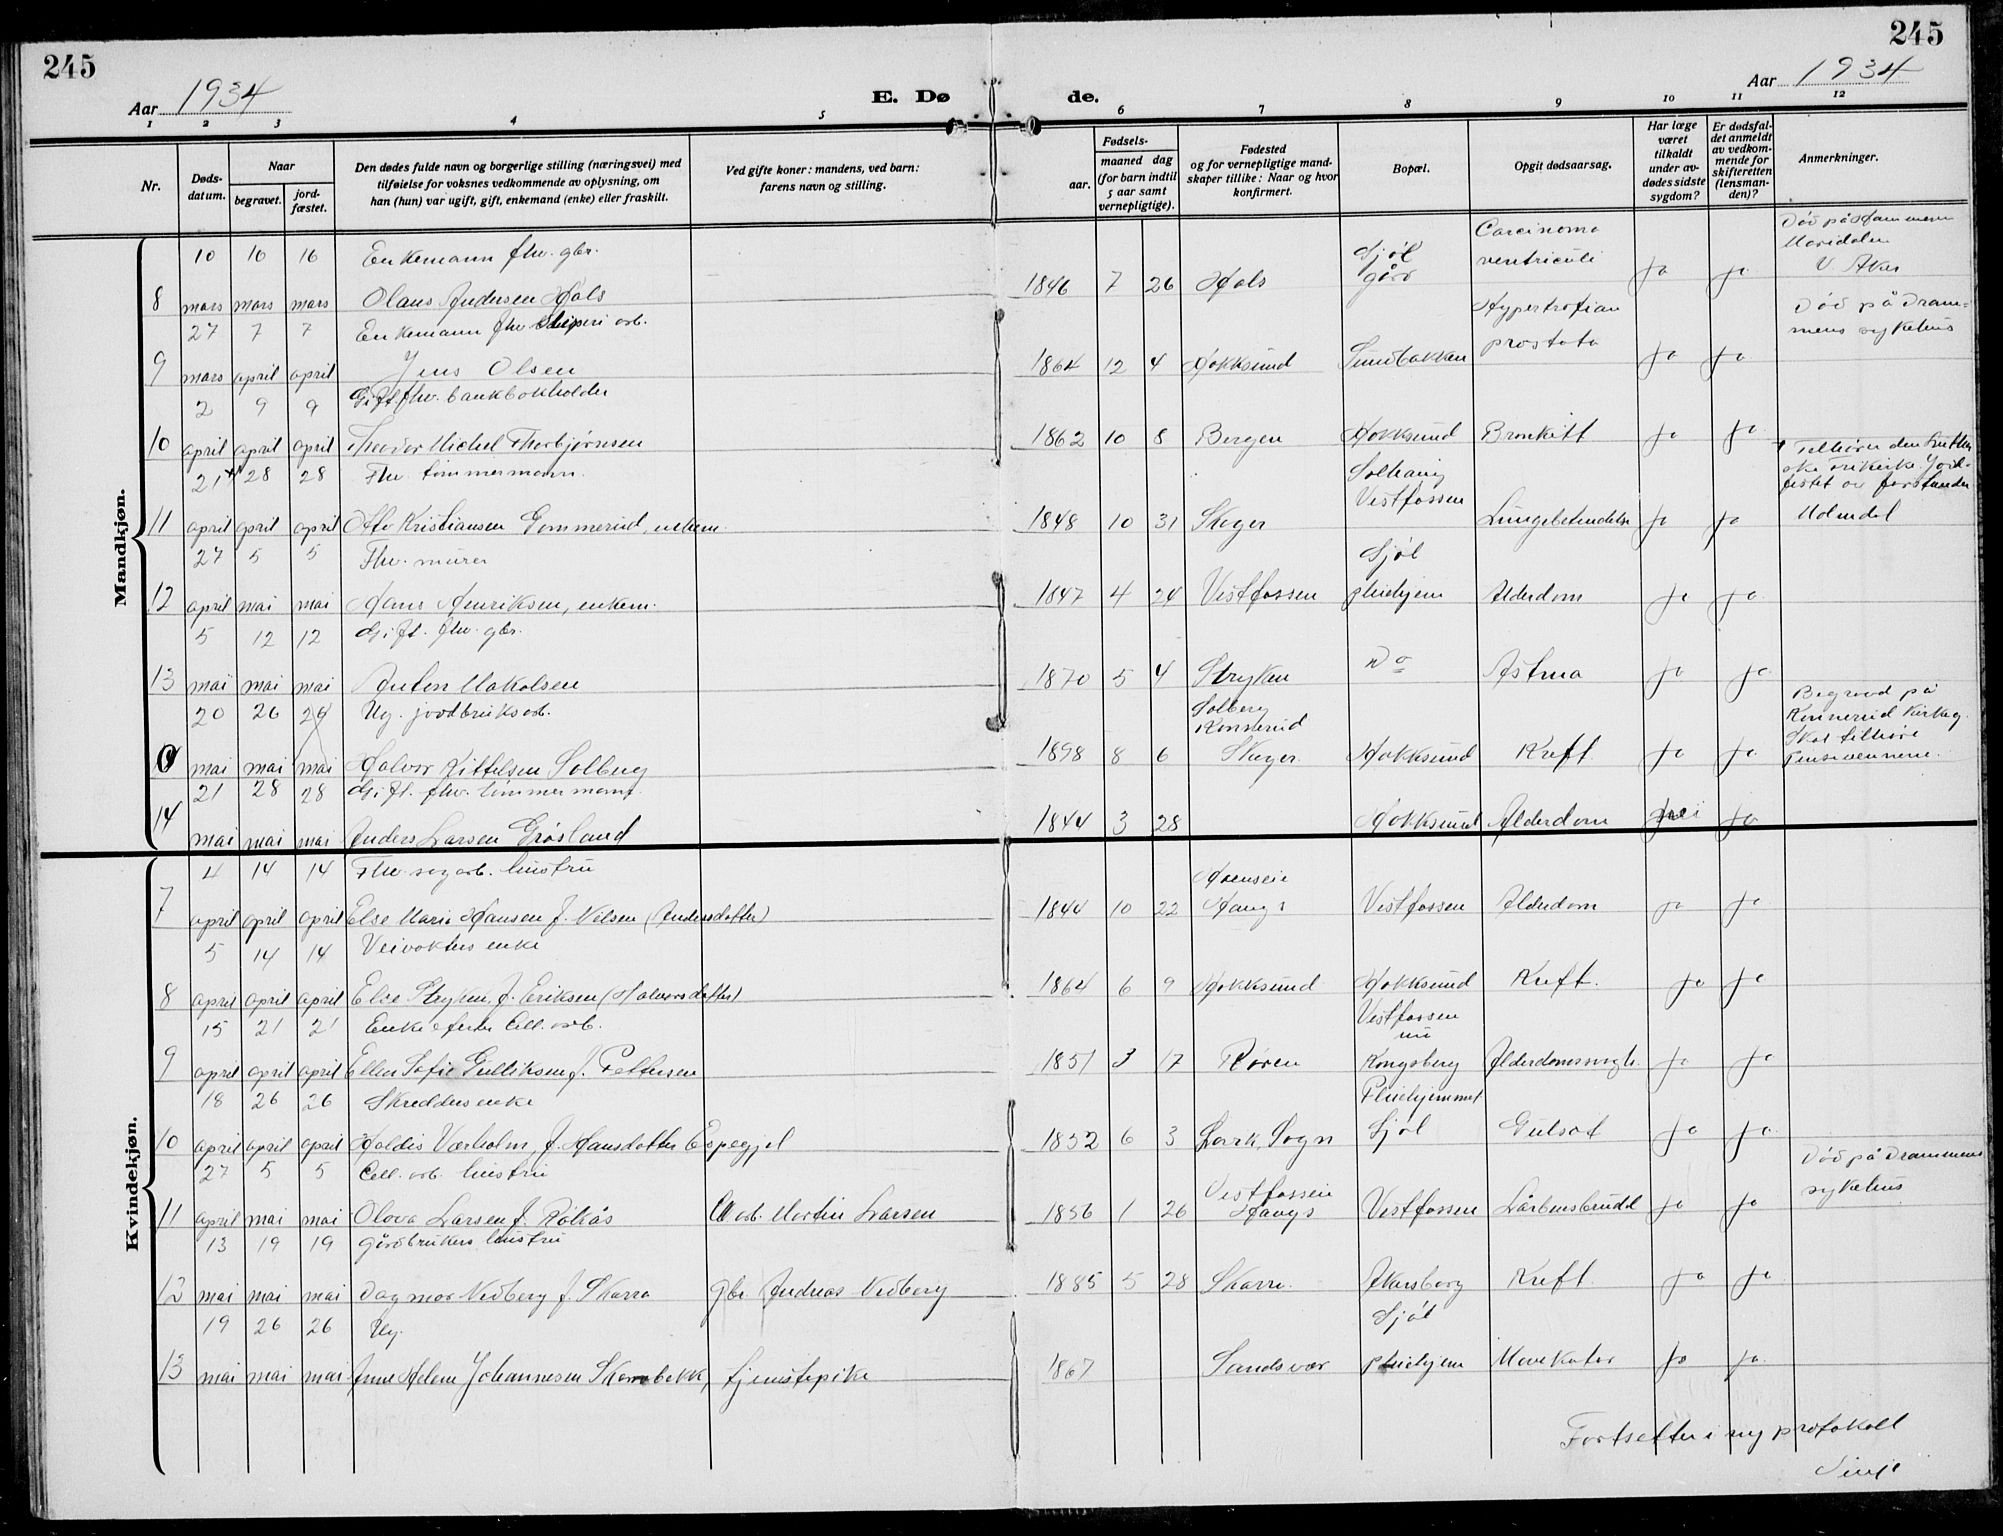 245
245
Aar 1934
E. Dø
de.
Aar 1934
1 2 3 4 5 6 7 8 9 10 11 12
Nr.
Døds-
datum.
Naar
begravet.
jord-
fæstet.
Den dødes fulde navn og borgerlige stilling (næringsvei) med
tilføielse for voksnes vedkommende av oplysning, om
han (hun) var ugift, gift, enkemand (enke) eller fraskilt.
Ved gifte koner: mandens, ved barn:
farens navn og stilling.
Fødsels-
aar.
maaned dag
(for barn indtil
5 aar samt
vernepligtige).
Fødested
og for vernepligtige mand-
skaper tillike: Naar og hvor
konfirmert.
Bopæl.
Opgit dødsaarsag.
Har læge
været
tilkaldt
under av-
dødes sidste
sygdom?
Er dødsfal-
det anmeldt
av vedkom-
mende for
skifteretten
(lensman-
den)?
Anmerkninger.
Mandkjøn.
10 16 16 Enkemann fhv. gbr. Sjøl Carcinoma Død på Hammeren
Maridalen
8 mars mars mars Olaus Andersen Hals 1846 7 26 Hals gård ventriculi ja ja V. Aker
27 7 7 Enkemann fhv. sliperi arb. Hypertrofian Død på Dram-
9 mars april april Jens Olsen 1864 12 4 Hokksund Sundbakken prostata ja ja mens sykehus
2 9 9 Gift fhv. bankbokholder
10 april april april Teodor Michel Thorbjørnsen 1862 10 8 Bergen Hokksund Bronkitt ja ja
21 28 28 Fhv. tømmermann Solhaug Tilhører den Luther
ske Frikirke. Jord-
festet av forstander
11 april april april Otto Kristiansen Gommerud, enkem. 1848 10 31 Skoger Vestfossen Lungebetendelse ja ja Holmdal
27 5 5 Fhv. murer Sjøl
12 april mai mai Hans Henriksen, enkem. 1847 4 24 Vestfossen pleiehjem Alderdom ja ja
5 12 12 Gift. fhv. gbr.
13 mai mai mai Anton Hakalsen 1870 5 4 Stryken do Astma ja ja
20 26 26 Ug. jordbruksarb. Solberg Begravd på
Konnerud Konnerud kirkeg.
Skal tilhøre
0 mai mai mai Halvor Kittelsen Solberg 1898 8 6 Skoger Hokksund Kreft ja ja Pinsevennene.
21 28 28 Gift. fhv. tømmermann.
14 mai mai mai Anders Larsen Grøsland 1844 3 28 Hokksund Alderdom nei ja
Kvindekjøn.
4 14 14 Fhv. sagarb. hustru Hoenseie
7 april april april Else Marie Hansen f. Nilsen (Andersdatter) 1844 10 22 Haugs Vestfossen Alderdom ja ja
5 14 14 Veivokters enke
8 april april april Else Stryken, f. Eriksen (Halvorsdatter) 1864 6 9 Hokksund Hokksund Kreft. ja ja
15 21 21 Enke efter Cell. arb. Vestfossen
nu
9 april april april Ellen Sofie Gulliksen f. Pettersen 1851 3 17 Røren Kongsberg Alderdomssvagh. ja ja
18 26 26 Skredders enke Pleiehjemmet
10 april april april Haldis Værholm, f. Hansdatter Espegjel 1852 6 3 Lark, Sogn Sjøl Gulsot ja ja
27 5 5 Cell. arb. hustru Vestfosseie Død på Drammens
11 april mai mai Olava Larsen f. Røkås Cell arb. Martin Larsen 1856 1 26 Haugs Vestfossen Lårbensbrudd ja ja sykehus
13 19 19 gårdbrukers hustru
12 mai mai mai Dagmar Nedberg f. Skarra gbr Andreas Nedberg 1885 5 28 Skarra. Akersborg Kreft. ja ja
19 26 26 Ug. Sjøl
13 mai mai mai Anne Helene Johannesen Skarrebekk, tjenestepike 1867 Sandsvær pleiehjem Mavekatar ja ja
Fortsetter i ny protokoll